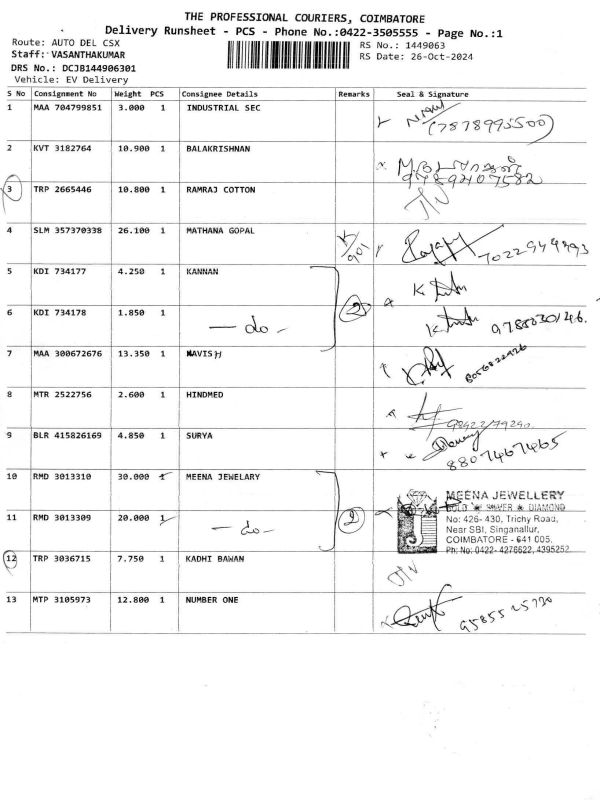 THE PROFESSIONAL COURIERS, COIMBATORE
Delivery Runsheet - PCS - Phone No.:0422-3505555 - Page No.:1
Route: AUTO DEL CSX
RS No.: 1449063
Staff: VASANTHAKUMAR
RS Date: 26-Oct-2024
DRS No.: DCJB144906301
Vehicle: EV Delivery
S No Consignment No Weight PCS Consignee Details Remarks Seal & Signature
1 MAA 704799851 3.000 1 INDUSTRIAL SEC
(7878995500)
2 KVT 3182764 10.900 1 BALAKRISHNAN
9489407582
3 TRP 2665446 10.800 1 RAMRAJ COTTON
4 SLM 357370338 26.100 1 MATHANA GOPAL
7022944993
5 KDI 734177 4.250 1 KANNAN
2
6 KDI 734178 1.850 1 - do -
7 MAA 300672676 13.350 1 KAVISH
8 MTR 2522756 2.600 1 HINDMED
9 BLR 415826169 4.850 1 SURYA
8807467465
10 RMD 3013310 30.000 1 MEENA JEWELARY
2
MEENA JEWELLERY
GOLD SILVER & DIAMOND
No: 426- 430, Trichy Road,
Near SBI, Singanallur,
COIMBATORE - 641 005.
Ph: No: 0422- 4276622, 4395252
11 RMD 3013309 20.000 1 - do -
12 TRP 3036715 7.750 1 KADHI BAWAN
13 MTP 3105973 12.800 1 NUMBER ONE